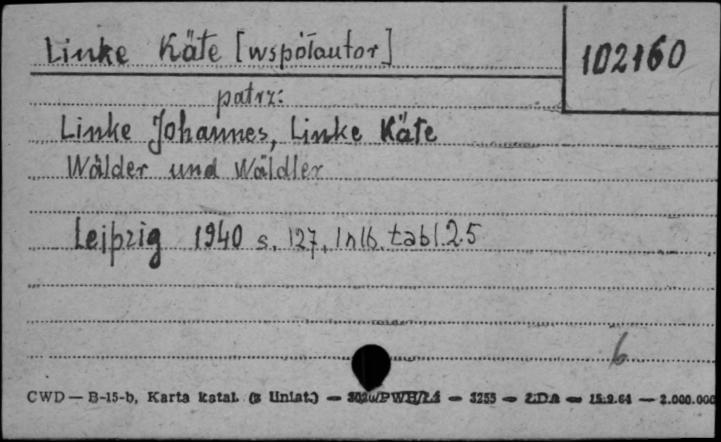 Linke Käte [współautor]
102160
patrz:
Linke Johannes, Linke Käte
Wälder und Wäldler
Leipzig 1940 s. 127, 1 nlb. tabl. 25
b
CWD — B-15-b, Karta katal. (z liniat.) — — 3255 — ZDA — 15.9.64 — 2.000.000